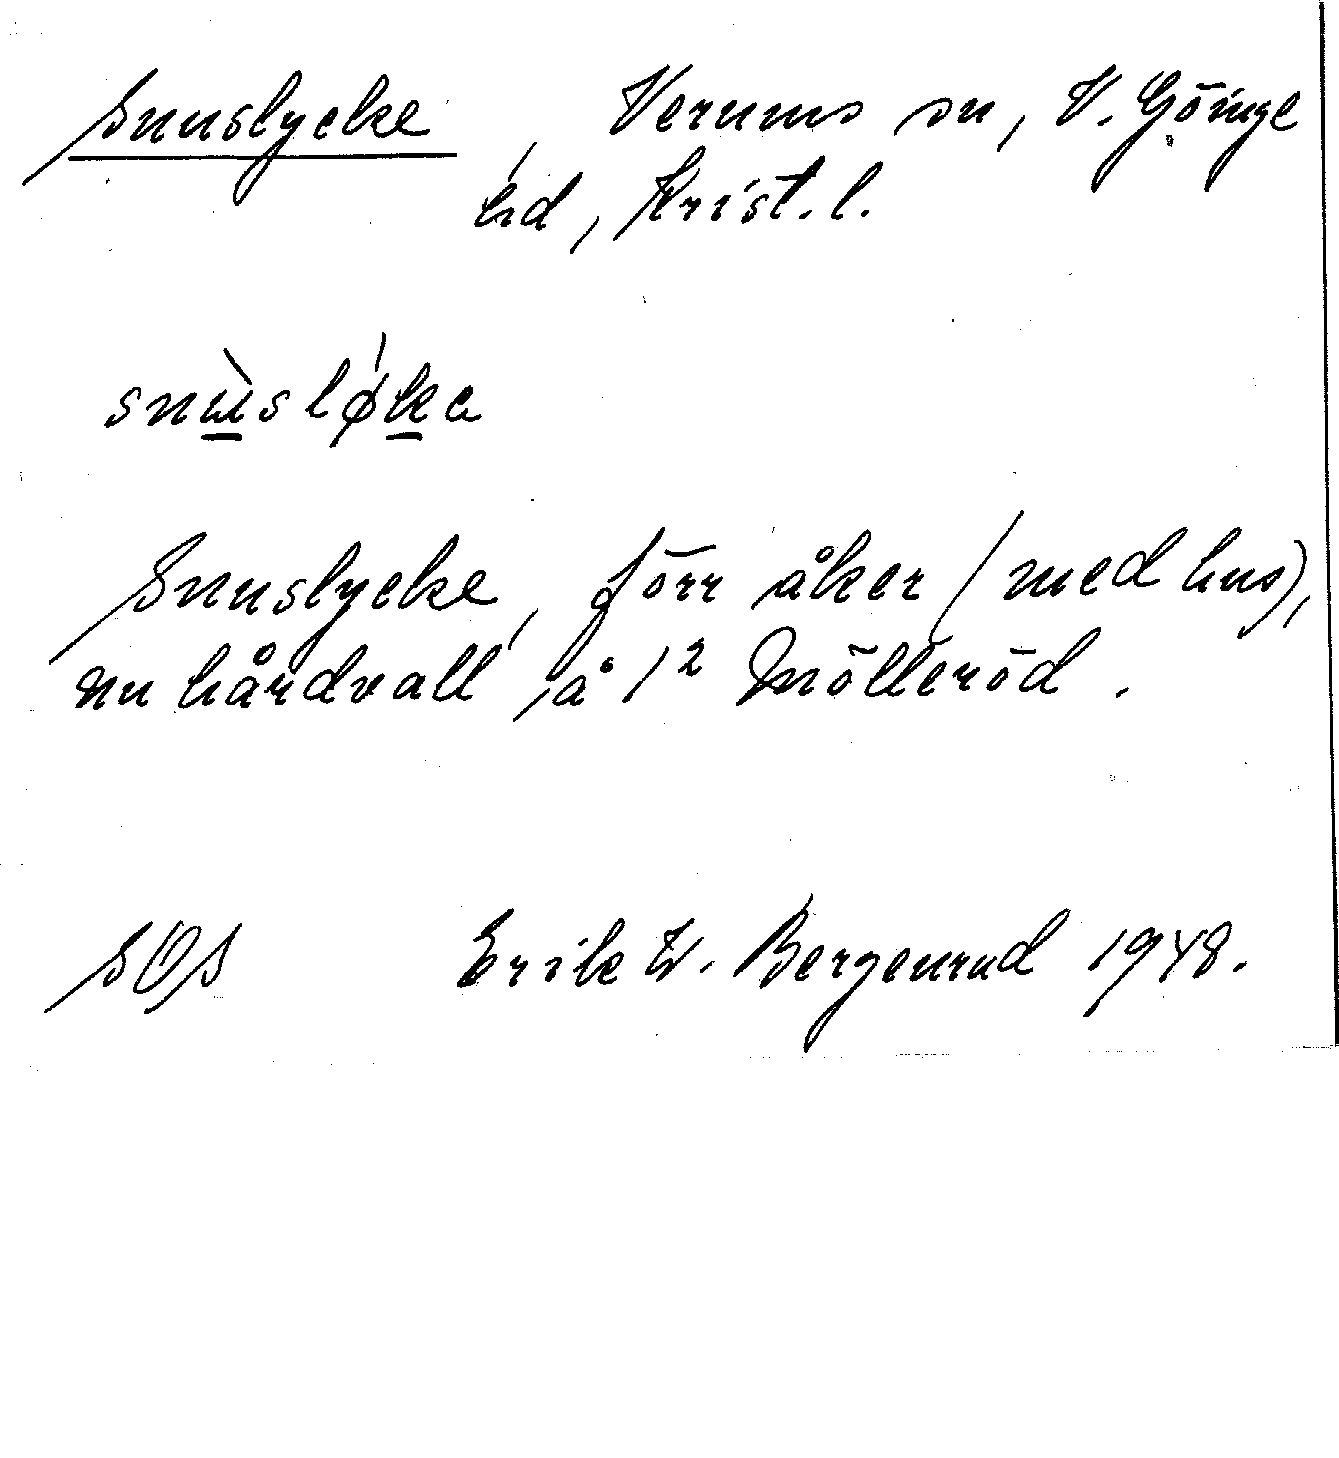 Snuslycke, Verums sn, V. Göinge
hd, Krist. l.
snùslǿka
Snuslycke, förr åker (med hus),
nu hårdvall, å 1² Mölleröd.
SOS Erik W. Bergenrud 1948.